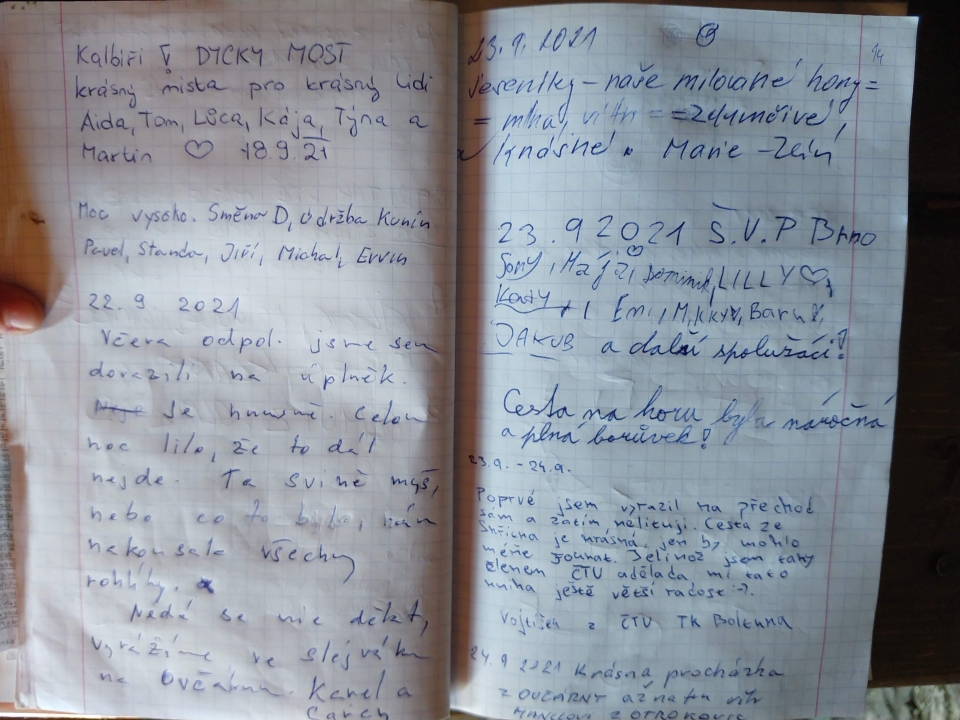 Kalbiři V DYCKY MOST
krásný místa pro krásný lidi
Aida, Tom, Lůca, Kája, Týna a
Martin ♡ 18.9.21
Moc vysoko. Směna D, údržba Kunín
Pavel, Standa, Jiří, Michal, Ervín
22.9 2021
Včera odpol. jsme sem
dorazili na úplněk.
Je hnusně. Celou
noc lilo, že to dál
nejde. Ta svině myš,
nebo co to bylo, nám
nakousala všechny
rohlíky.
Nedá se nic dělat,
vyrážíme ve slejváku
na Ovčárnu. Karel a
23.9.2021
Jeseníky - naše milované hory =
= mlha, vítr = =
krásné. Marie
23.9 2021 Š.V.P Brno
Dominik, LILLY ♡,
Emi, Mikky, Baru
JAKUB a další spolužáci!
Cesta na horu byla náročná
a plná borůvek!
23.9. - 24.9.
Poprvé jsem vyrazil na přechod
sám a zatím nelituji. Cesta ze
je krásná, jen by mohlo
méně foukat. Jelikož jsem taky
členem ČTU udělala mi tato
kniha ještě větší radost :-).
Vojtíšek z ČTU TK
24.9 2021 Krásná procházka
z OVČÁRNY až na tu
z OTROKOVIC